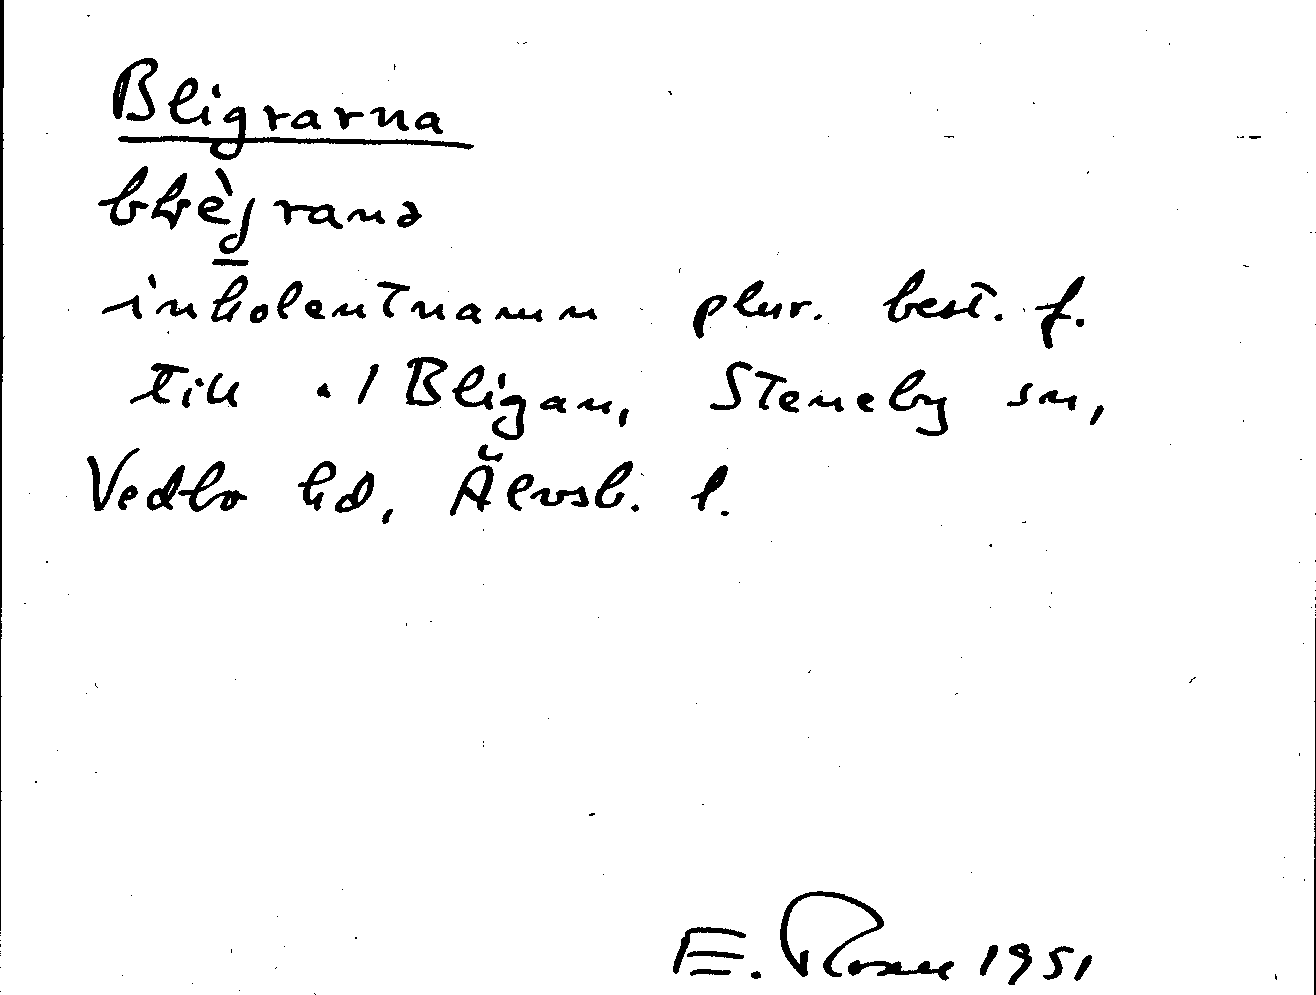 Bligrarna
inbolentnamn plur. best. f.
till ./ Bligan, Steneby sn,
Vedbo hd, Älvsb. l.
E. 1951